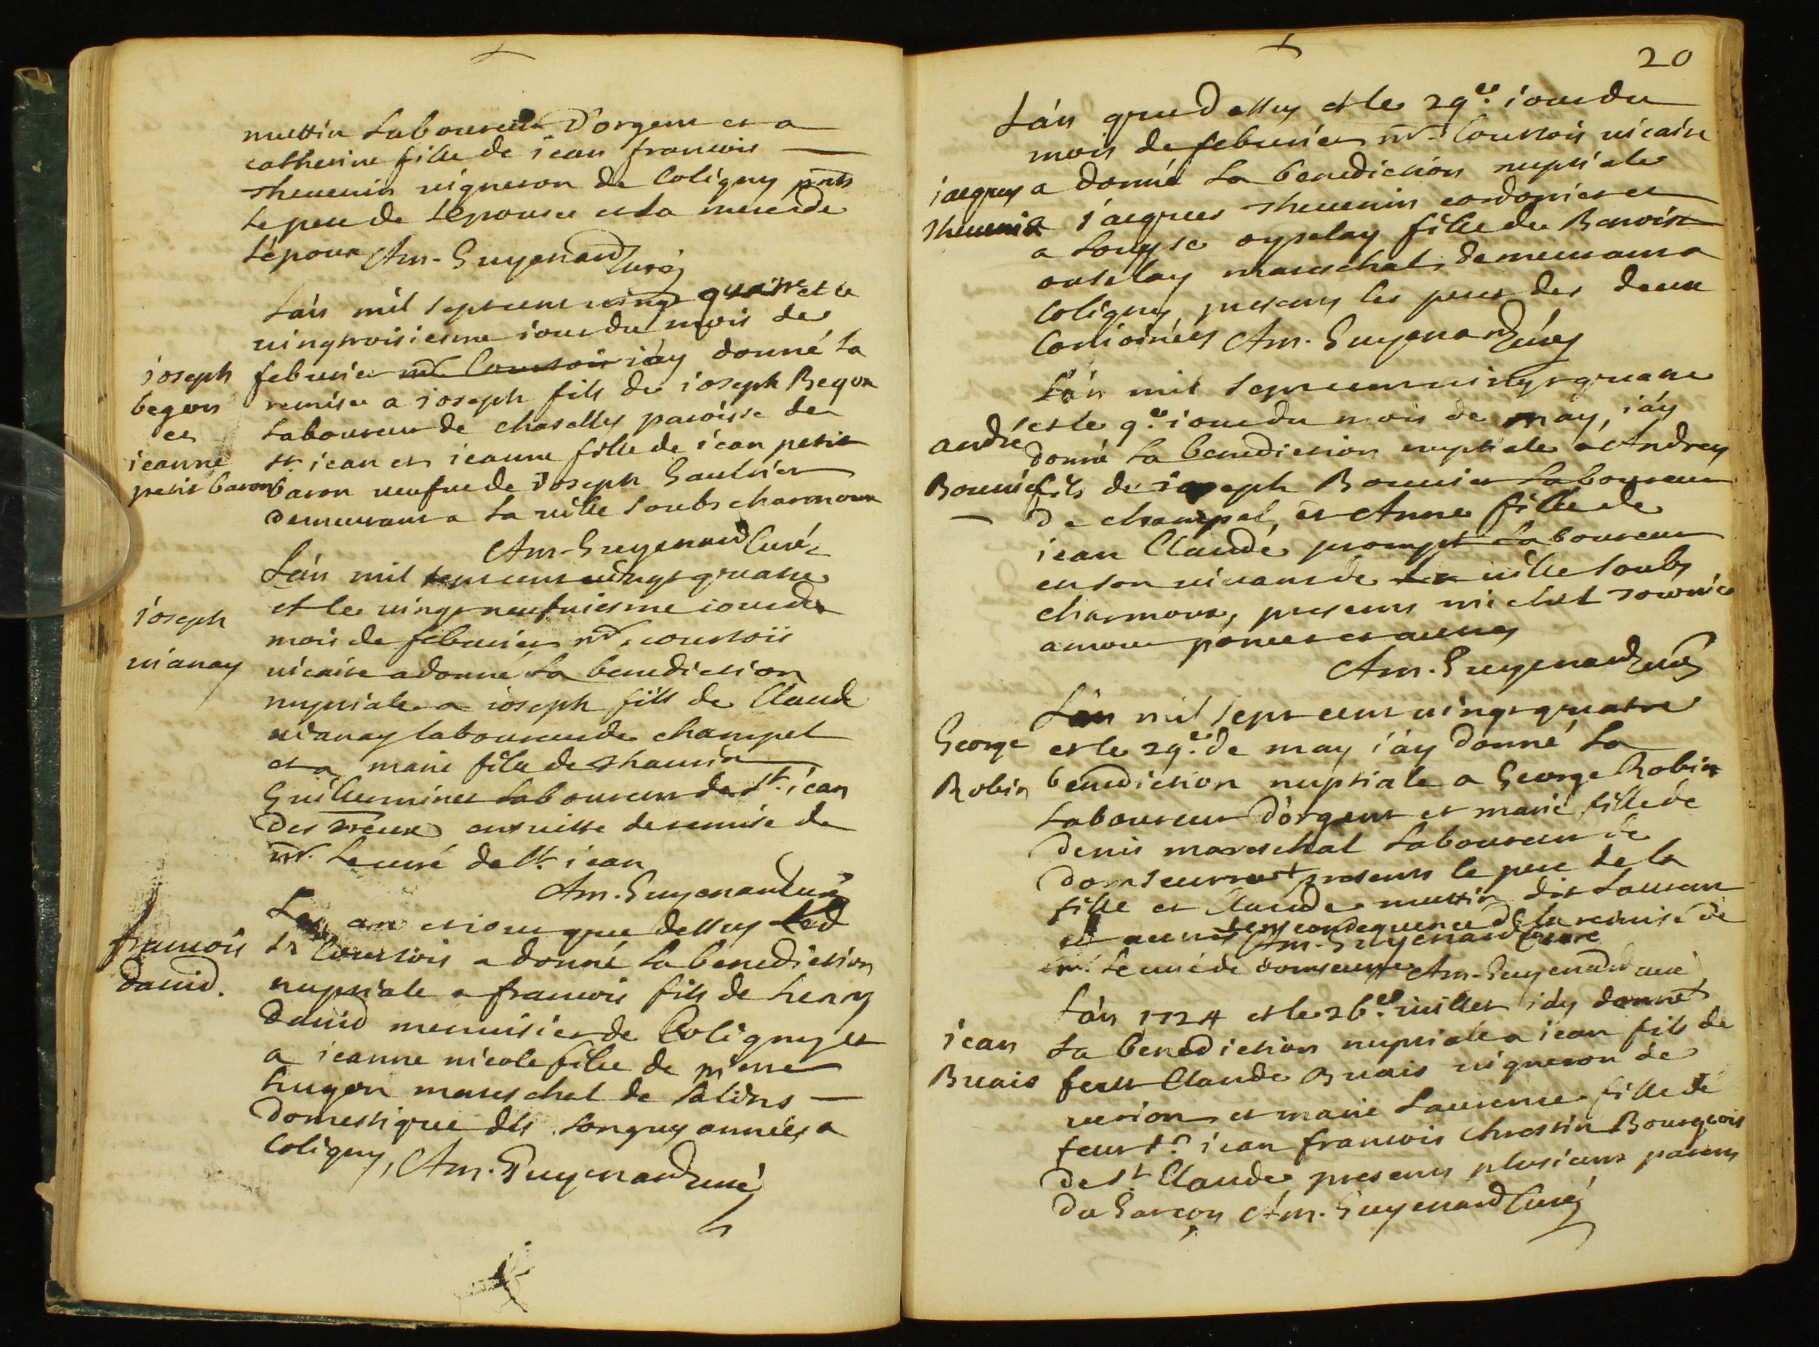 muttin Laboureur D'orgent et a
catherine fille de jean francois
thevenin vigneron de Coligny pnts
le pere de L'epousee et la mere de
L'epoux Am. Guyenard Curé
L'an mil sept cent vingt quatre et le
vingtroisiesme jour du mois de
joseph febvrier mr Courtois j'ay donné la
begon remise a joseph fils de joseph Begon
et Laboureur de chaselles paroisse de
jeanne st jean et jeanne fille de jean petit
petit baron baron veufve de Joseph Gaultier
demeurant a La ville soubs charmoux
Am. Guyenard Curé
L'an mil sept cent vingt quatre
et le vingt neufviesme jour du
joseph mois de febvrier mr. courtois
vianay vicaire a donné La benediction
nuptiale a joseph fils de Claude
vianay laboureur de champel
et a marie fille de
Guilleminet Laboureur de st. jean
des treux ensuitte de remise de
mr. Le curé de st. jean
Am. Guyenard curé
L'an et jour que dessus
francois Sr Courtois a donné La benediction
david. nuptiale a francois fils de henry
David menuisier de Coligny et
a jeanne nicole fille de pierre
hugon mareschal de Salins
domestique des longues années a
Coligny, Am. Guyenard curé
20
L'an que dessus et le 29e. jour du
mois de febvrier mr. Courtois vicaire
jacques a donné La benediction nuptiale
thevenin a jacques thevenin cordonier et
a Louyse oyselay fille de Benoist
oyselay mareschal demeurant a
Coligny, presens les peres des deux
Conjoinées Am. Guyenard curé
L'an mil sept cent vingt quatre
andré et le 9e. jour du mois de may, j'ay
donné La benediction nuptiale a Andrey
Bouvier fils de joseph Bouvier Laboureur
de champel, et Anne fille de
jean Claude prompt Laboureur
en son vivant de La ville soubs
charmoux, presens michel
et autres
Am. Guyenard curé
L'an mil sept cent vingt quatre
George et le 29e. de may j'ay donné La
Robin benediction nuptiale a George Robin
Laboureur D'orgent et marie fille de
denis mareschal Laboureur de
domseurre presens le pere de la
fille et Claude muttin dit Laurent
et autres en consequence de La remise de
Am. Guyenard Curé
mr. Le curé de domseurre Am. Guyenard curé
L'an 1724 et le 26e. juillet j'ay donné
jean La benediction nuptiale a jean fils de
Buais feu Claude Buais vigneron de
verion et marie Laurence fille de
feu sr. jean francois chrestin Bourgeois
de st Claude presens plusieurs parens
du Garçon Am. Guyenard Curé